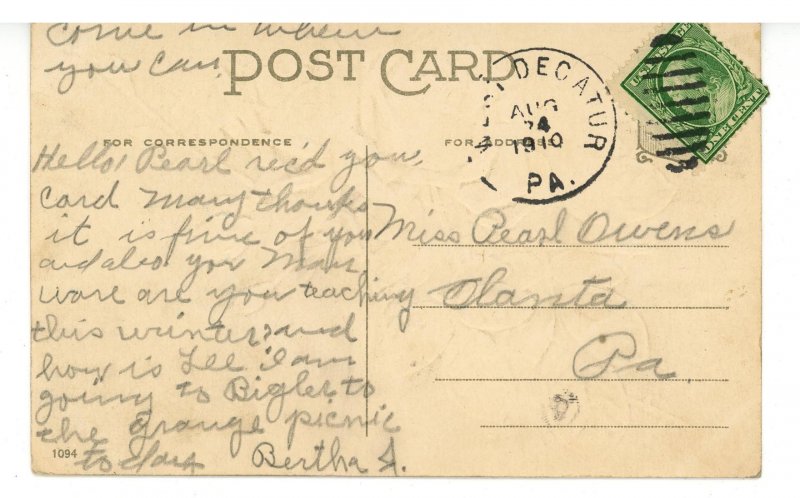 come in when
you can.
POST CARD
WEST DECATUR
AUG
24
1910
PA.
FOR CORRESPONDENCE
FOR ADDRESS
Hello! Pearl rec'd you,
card Many thanks
it is fine of you
and also your Mam
ware are you teaching
this winter and
how is Lee I am
going to Bigler to
the grange picnic
1094
to day Bertha
Miss Pearl Owens
Olanta
Pa